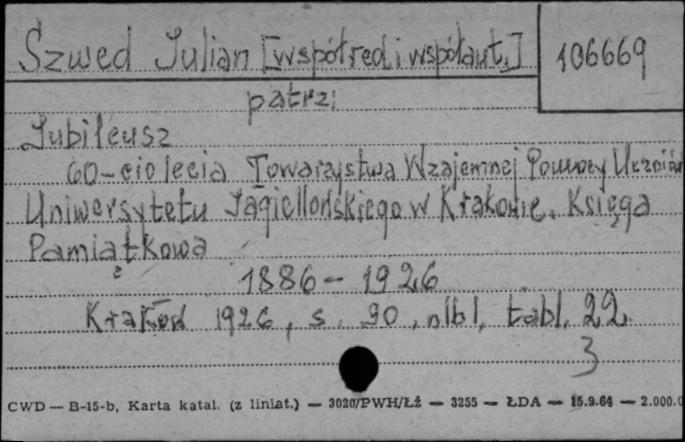 Szwed Julian [współred.i współaut.] 106669
patrz:
Jubileusz
60-ciolecia Towarzystwa Wzajemnej Pomocy Uczniów
Uniwersytetu Jagiellońskiego w Krakowie. Księga
Pamiątkowa
1886-1926
Kraków 1926, s. 90, nlbl, tabl. 22.
3
CWD — B-15-b, Karta katal. (z liniat.) — 3020/PWH/Łź — 3255 — ŁDA — 15.9.64 — 2.000.0